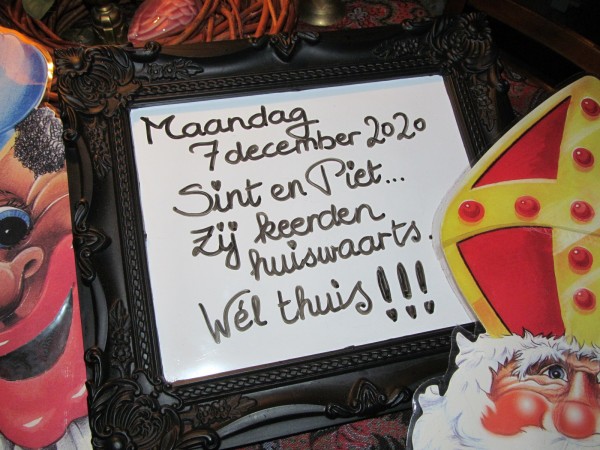 Maandag
7 december 2020
Sint en Piet...
Zij keerden
huiswaarts.
Wél thuis!!!